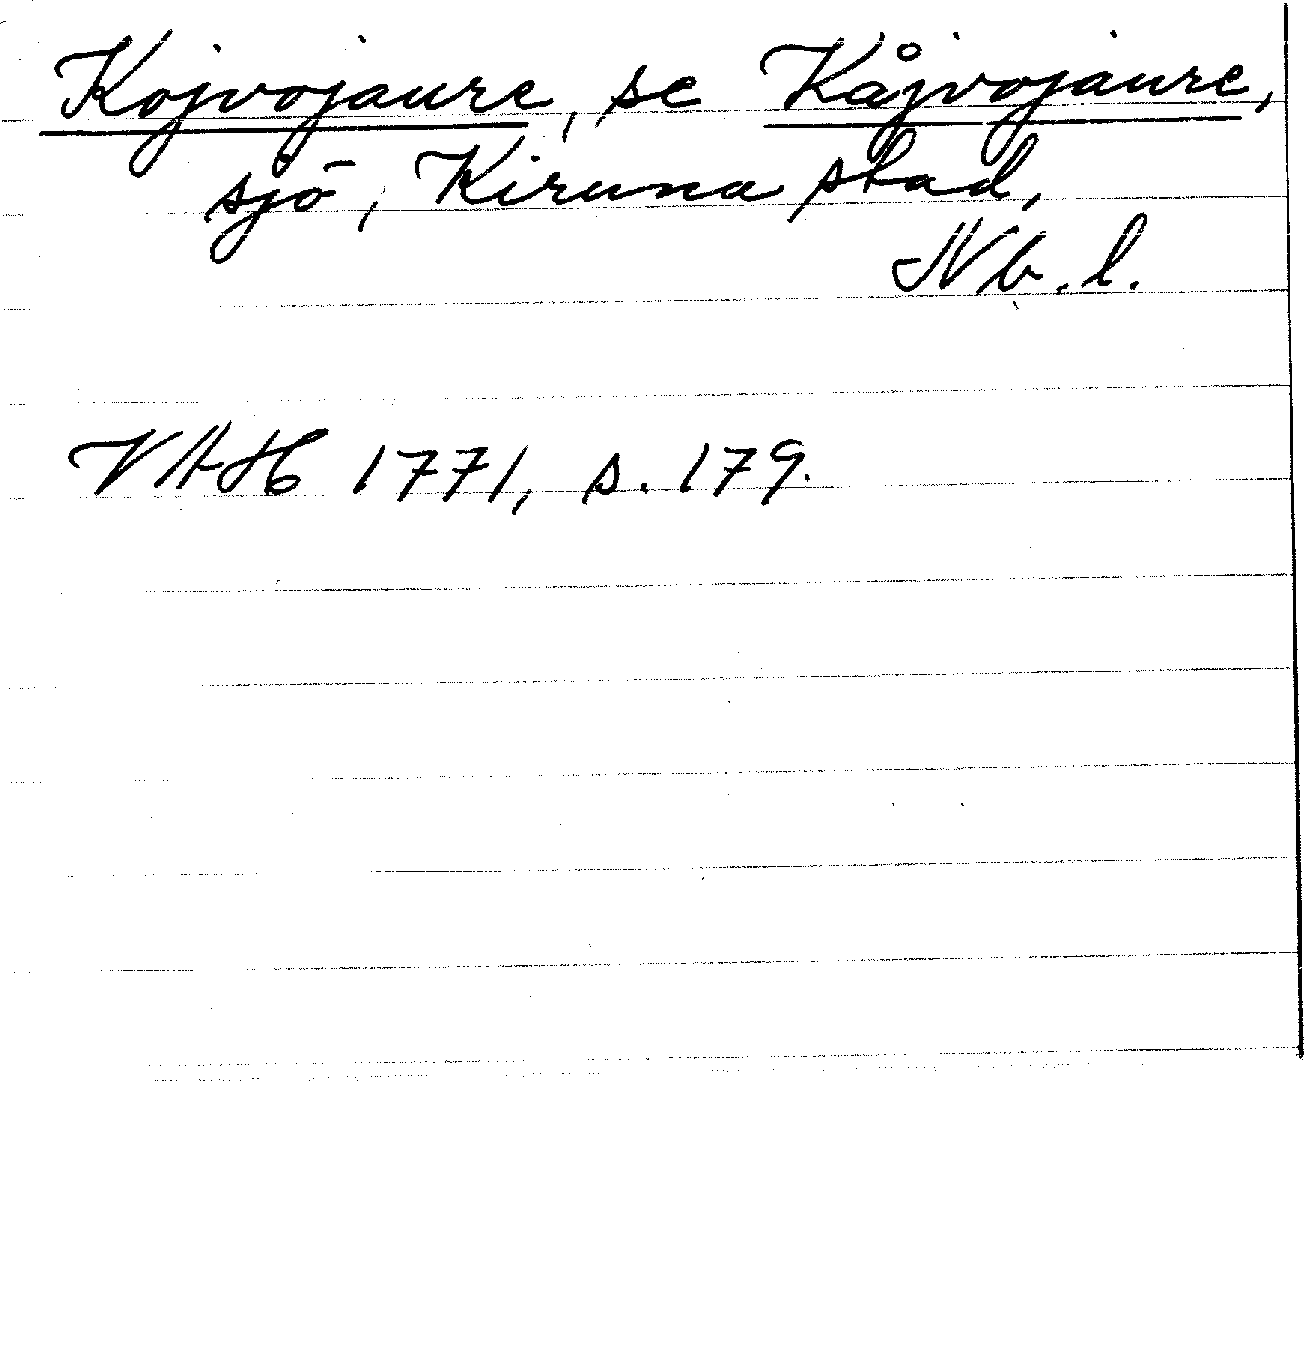 Kojvojaure, se Kåjvojaure,
sjö, Kiruna stad,
Nb. l.
VAH 1771, s. 179.